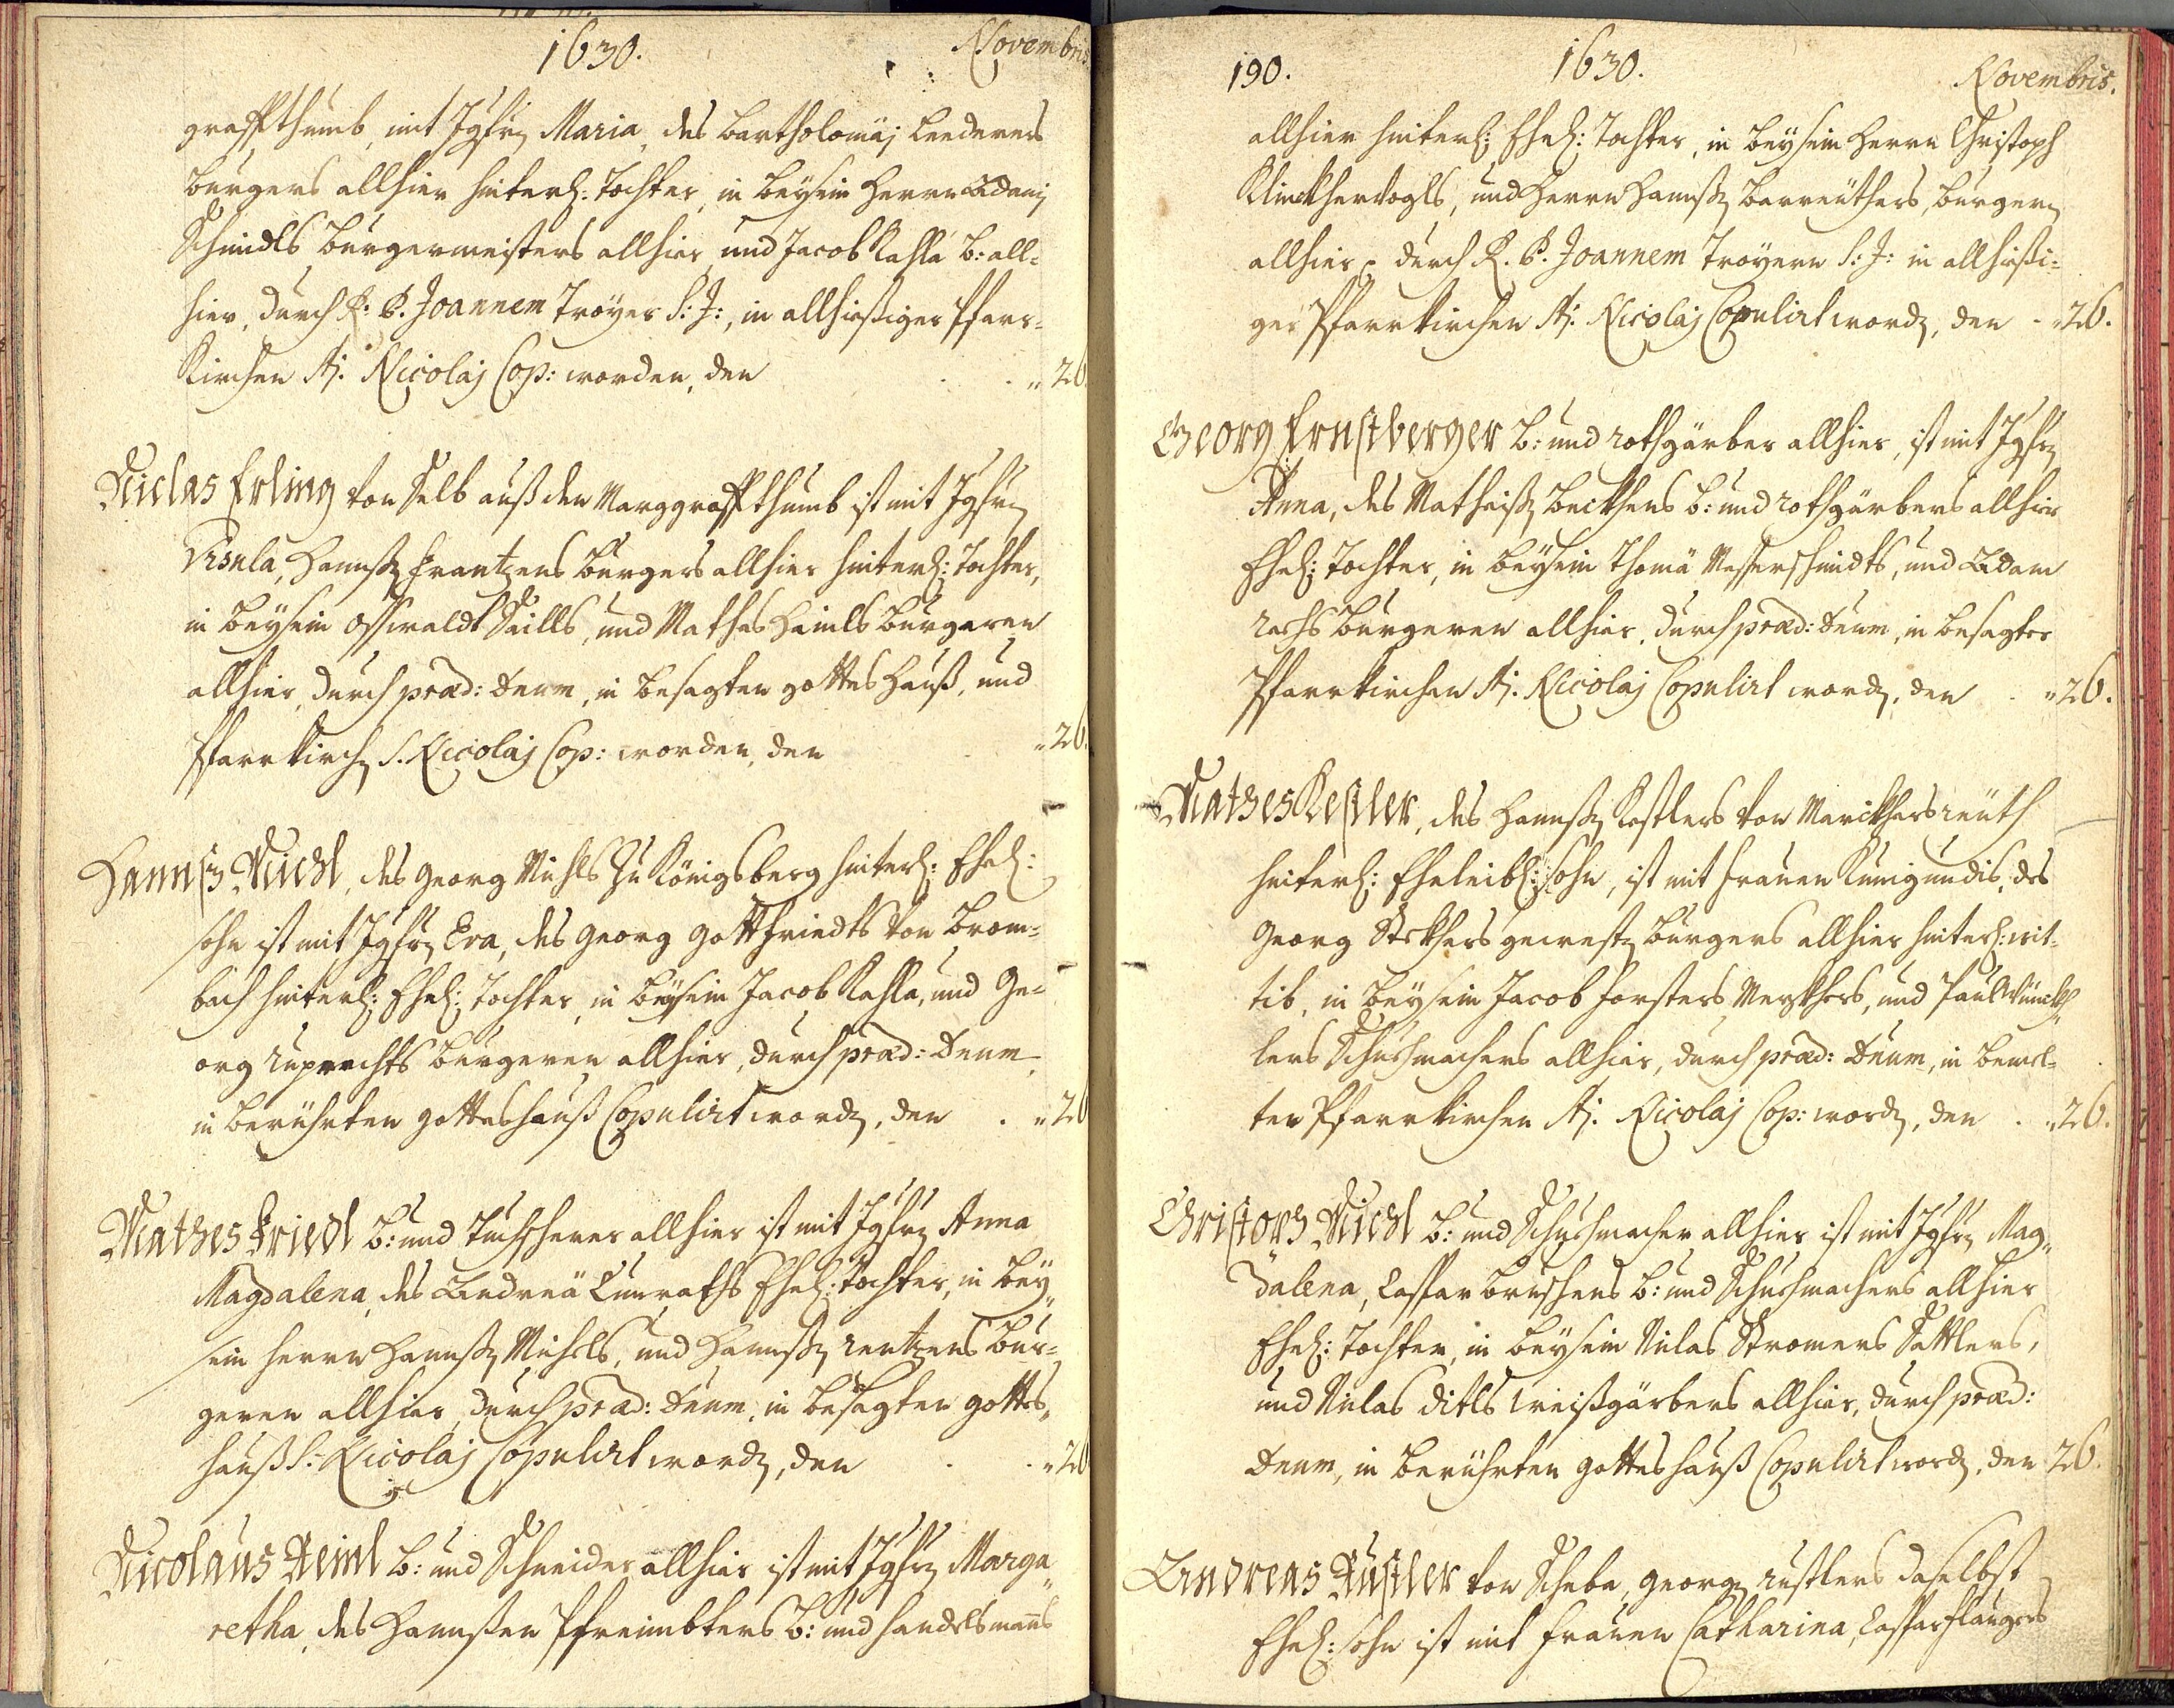 1630.
Novembris
graffthumb, mit Jgfrn Maria, des Bartholomäj Lederers
Burgers allhier hinterl: Tochter, in beysein Herrn Adami
Schmidts Burgermeisters allhier, und Jacob Kahla b: all=
hier, durch R: P. Joannem Troyer S: J:, in allhießiger Pfarr=
Kirchen St. Nicolaj Cop: worden, den . . „ 26
Niclas Erling von Selb auß den Marggraffthumb ist mit Jgfrn
Vrsula, Hannßn Frantzens Burgers allhier hinterl: Tochter,
in beysein Oßwaldt Saills, und Mathes Haimls Burgeren
allhier, durch præd: Deum, in besagten gottes Hauß, und
Pfarrkirchn S. Nicolaj Cop: worden, den „ 26.
Hannß Michl, des Georg Michls zu Königsberg hinterl: Ehel:
sohn ist mit Jgfrn Eva, des Georg Gottfriedts von Brom=
bach hinterl: Ehel: Tochter, in beysein Jacob Kahla, und Ge=
org Ruprechts Burgeren allhier, durch præd: Deum
in berührten gotteshauß Copulirt wordn, den . „ 26
Mathes Friedl b: und Tuchscherer allhier ist mit Jgfrn Anna
Magdalena, des Andreä Cunraths Ehel: Tochter, in bey„
sein Herrn Hannßn Michels, und Hannßn Rentzens Bur=
geren allhier, durch præd: Deum, in besagten gottes„
hauß S: Nicolaj Copulirt wordn, den . . „ 26
Nicolaus Heinl b: und Schneider allhier ist mit Jgfrn Marga„
retha, des Hannßen Pfreimbters b: und Handelsmans
190.
1630.
Novembris.
allhier hinterl: Ehel: Tochter, in beysein Herrn Christoph
Klinckhervogls, und Herrn Hannßn Barreuthers, burgern
allhier, durch R. P. Joannem Troyern S: J: in allhießi=
ger Pfarrkirchen St. Nicolaj Copulirt wordn, den - „ 26.
Georg Ernstberger b: und rothgärber allhier, ist mit Jgfrn
Anna, des Matheißn Beckhens b: und rothgärbers allhier
Ehel: Tochter, in beysein Thomä Messerschmidts, und Adam
Burgeren allhier, durch præd: Deum, in besagter
Pfarrkirchen St. Nicolaj Copulirt wordn, den . „ 26.
Mathes Kestler, des Hannßn Kestlers von Marckhersreuth
hinterl: Eheleibl: sohn, ist mit Frauen Kunigundis, des
Georg Beckhers gewestn Burgers allhier hinterl: wit=
tib, in beysein Jacob Forsters, und Paul Winckh„
lers Schuchmachers allhier, durch præd: Deum, in bemel=
ter Pfarrkirchen St. Nicolaj Cop: wordn, den . . „ 26.
Christoph Michl b: und Schuchmacher allhier ist mit Jgfrn Mag„
dalena, Caspar Bruschens b: und Schuchmachers allhier
Ehel: Tochter, in beysein Niclas Stromers Sattlers,
und Niclas Ditls Weißgärbers allhier, durch præd:
Deum, in berührten gotteshauß Copulirt wordn, den 26.
Andreas Rustler von Scheba, Georgn Rustlers daselbst
Ehel: sohn ist mit Frauen Catharina, Caspar Flaugers